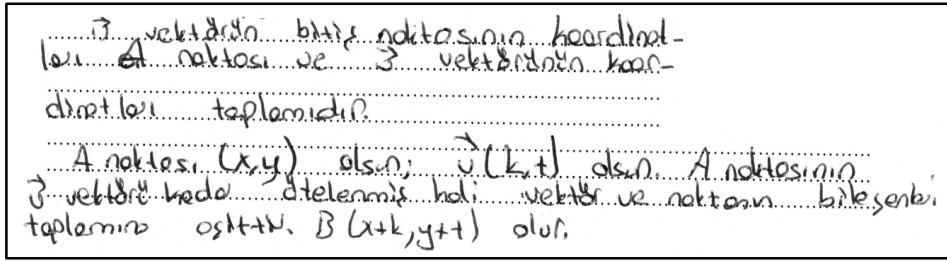 v⃗ vektörün bitiş noktasının koordinat-
ları A noktası ve v⃗ vektörünün koor-
dinatları toplamıdır.
A noktası (x,y) olsun; v⃗ (k,t) olsun. A noktasının
v⃗ vektörü kadar ötelenmiş hali vektör ve noktanın bileşenleri
toplamına eşittir. B (x+k, y+t) olur.